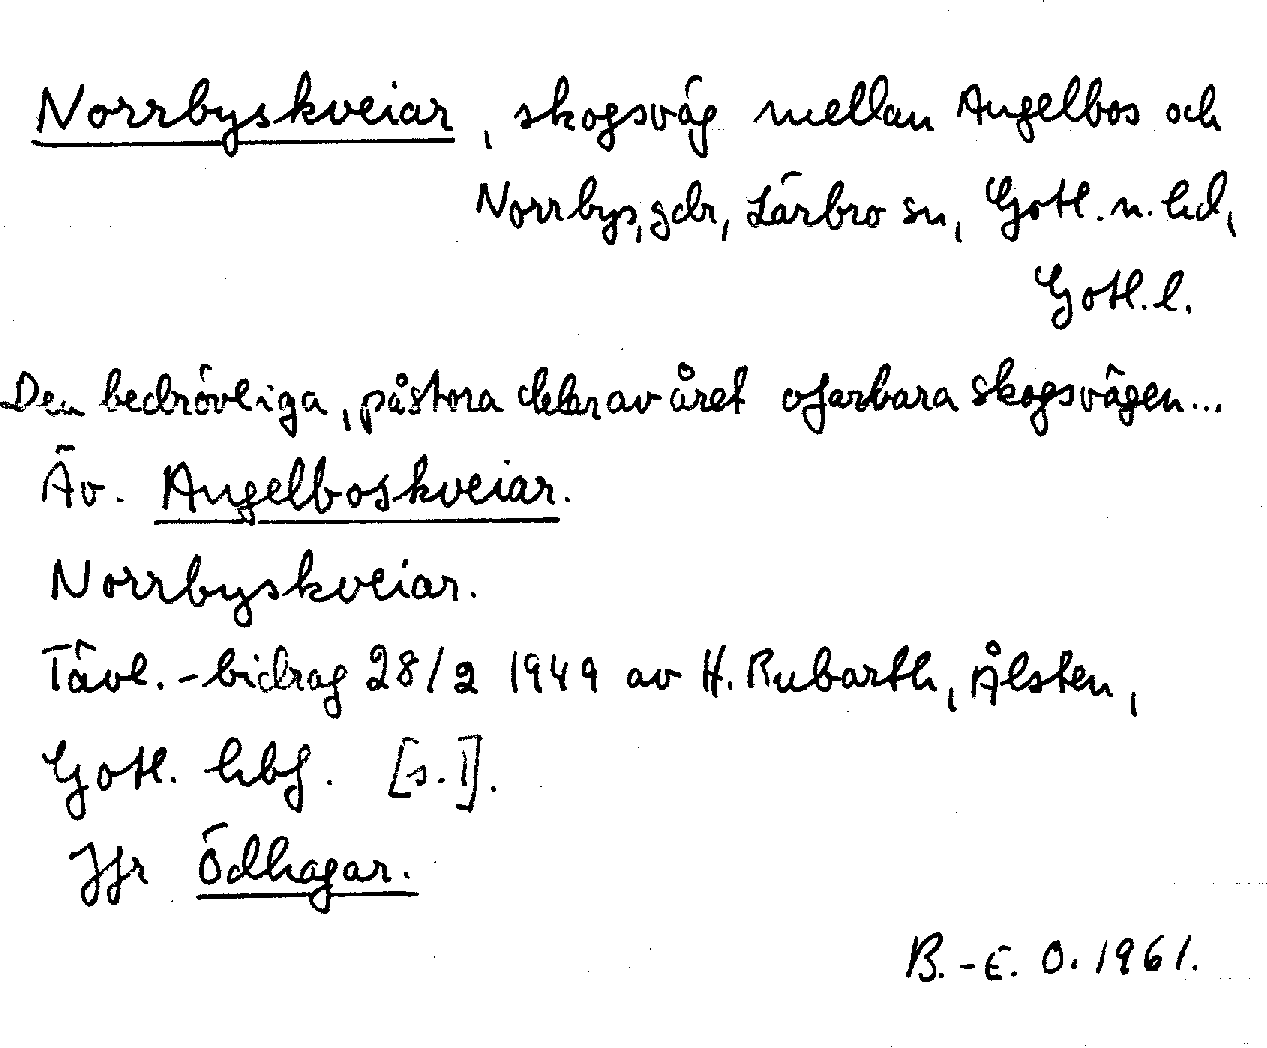 Norrbyskveiar, skogsväg mellan Angelbos och
Norrbys, gdr, Lärbro sn, Gotl. n. hd,
Gotl. l.
Den bedrövliga, på stora delar av året ofarbara skogsvägen...
Äv. Angelboskveiar.
Norrbyskveiar.
Tävl.-bidrag 28/2 1949 av H. Rubarth, Ålsten,
Gotl. hbf. [s. 1].
Jfr Ödhagar.
B.-E. O. 1961.